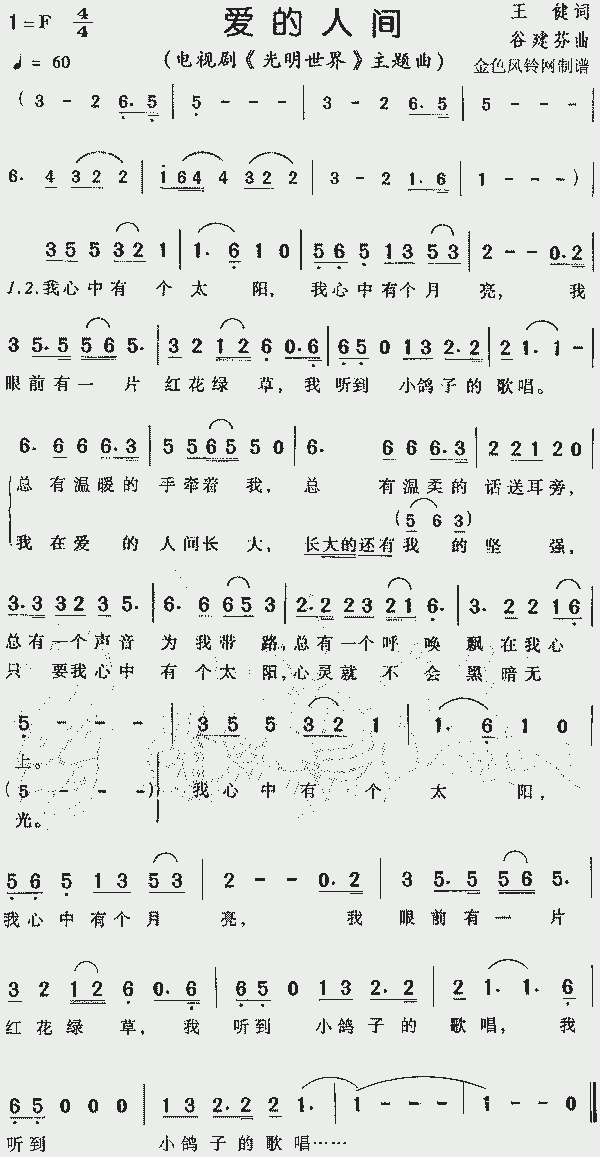 爱的人间
1=F 4/4
王 健词
谷建芬曲
♩= 60
(电视剧《光明世界》主题曲)
金色风铃网制谱
( 3 - 2 6. 5 | 5 - - - | 3 - 2 6. 5 | 5 - - - |
6. 4 3 2 2 | i 6 4 4 3 2 2 | 3 - 2 1. 6 | 1 - - - ) |
3 5 5 3 2 1 | 1. 6 1 0 | 5 6 5 1 3 5 3 | 2 - - 0. 2 |
1.2.我心中有 个 太 阳, 我心中有个月 亮, 我
3 5. 5 5 6 5. | 3 2 1 2 6 0. 6 | 6 5 0 1 3 2. 2 | 2 1. 1 - |
眼前有一 片 红花绿 草, 我 听到 小鸽子的 歌唱。
6. 6 6 6. 3 | 5 5 6 5 5 0 | 6. 6 6 6. 3 | 2 2 1 2 0 |
总 有温暖的 手牵着 我, 总 有温柔的 话送耳旁,
( 5 6 3 )
我 在爱 的 人间长 大, 长大的还有我 的 坚 强,
3. 3 3 2 3 5. | 6. 6 6 5 3 | 2. 2 2 3 2 1 6. | 3. 2 2 1 6 |
总有一个声音 为 我带 路, 总有一个呼 唤 飘 在我心
只 要我心中 有 个太 阳, 心灵就 不 会 黑暗无
5 - - - | 3 5 5 3 2 1 | 1. 6 1 0 |
上。
( 5 - - - ) | 我 心 中 有 个 太 阳,
光。
5 6 5 1 3 5 3 | 2 - - 0. 2 | 3 5. 5 5 6 5. |
我心中有个月 亮, 我 眼前有一 片
3 2 1 2 6 0. 6 | 6 5 0 1 3 2. 2 | 2 1. 1. 6 |
红花绿 草, 我 听到 小鸽子的 歌唱, 我
6 5 0 0 0 | 1 3 2. 2 2 1. | 1 - - - | 1 - - 0 ‖
听到 小鸽子的歌唱……